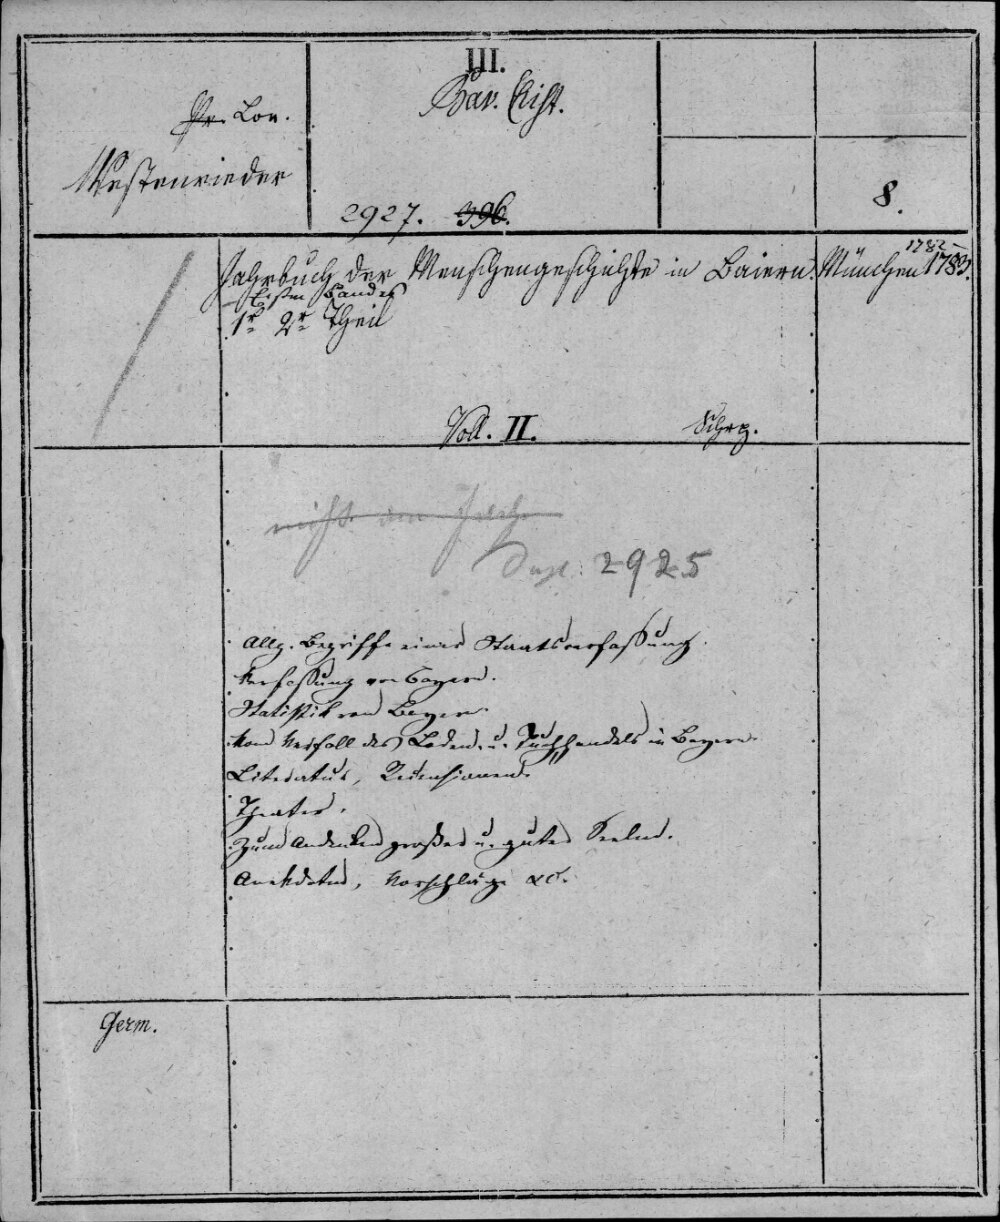 III.
Bav. Hist.
Pr. Lor.
Westenrieder
2927. 396.
8.
Jahrbuch der Menschengeschichte in Baiern. München 1782-1783.
Ersten Bandes
1r 2r Theil
Voll. II.
nicht am
Dupl. 2925
Allg. Begriffe einer Staatsverfassung.
Verfassung von Bayern.
Statistik von Bayern.
Vom Verfall des Loden u. Tuchhandels in Bayern.
Literatur, Recensionen.
Theater.
Zum Andenken großer u. guter Seelen.
Anekdoten, Vorschläge &c.
Germ.